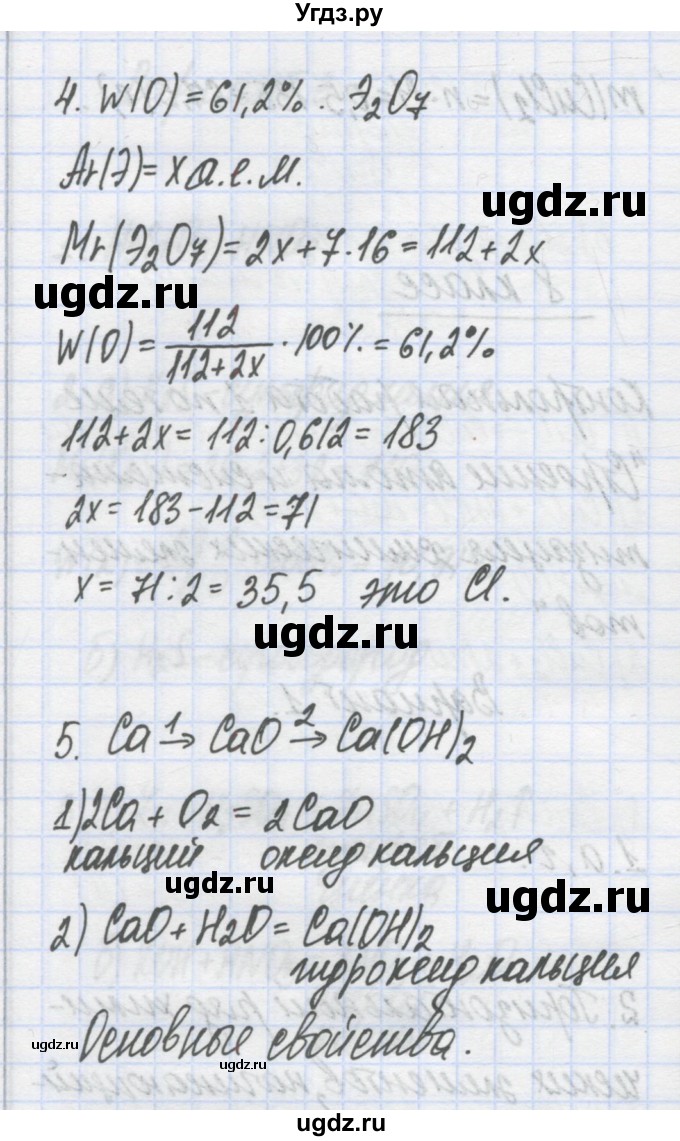 Угдз.ру
4. W(O) = 61,2% . Э₂O₇
Ar(Э) = x а.е.м.
ugdz.ru
Mr(Э₂O₇) = 2x + 7·16 = 112 + 2x
ugdz.ru
W(O) = 112/(112+2x) · 100% = 61,2%
112 + 2x = 112 : 0,612 = 183
2x = 183 - 112 = 71
x = 71 : 2 = 35,5 это Cl.
ugdz.ru
5. Ca →¹ CaO →² Ca(OH)₂
1) 2Ca + O₂ = 2CaO
кальций оксид кальция
ugdz.ru
ugdz.ru
2) CaO + H₂O = Ca(OH)₂
гидроксид кальция
Основные свойства.
ugdz.ru
ugdz.ru
ugdz.ru